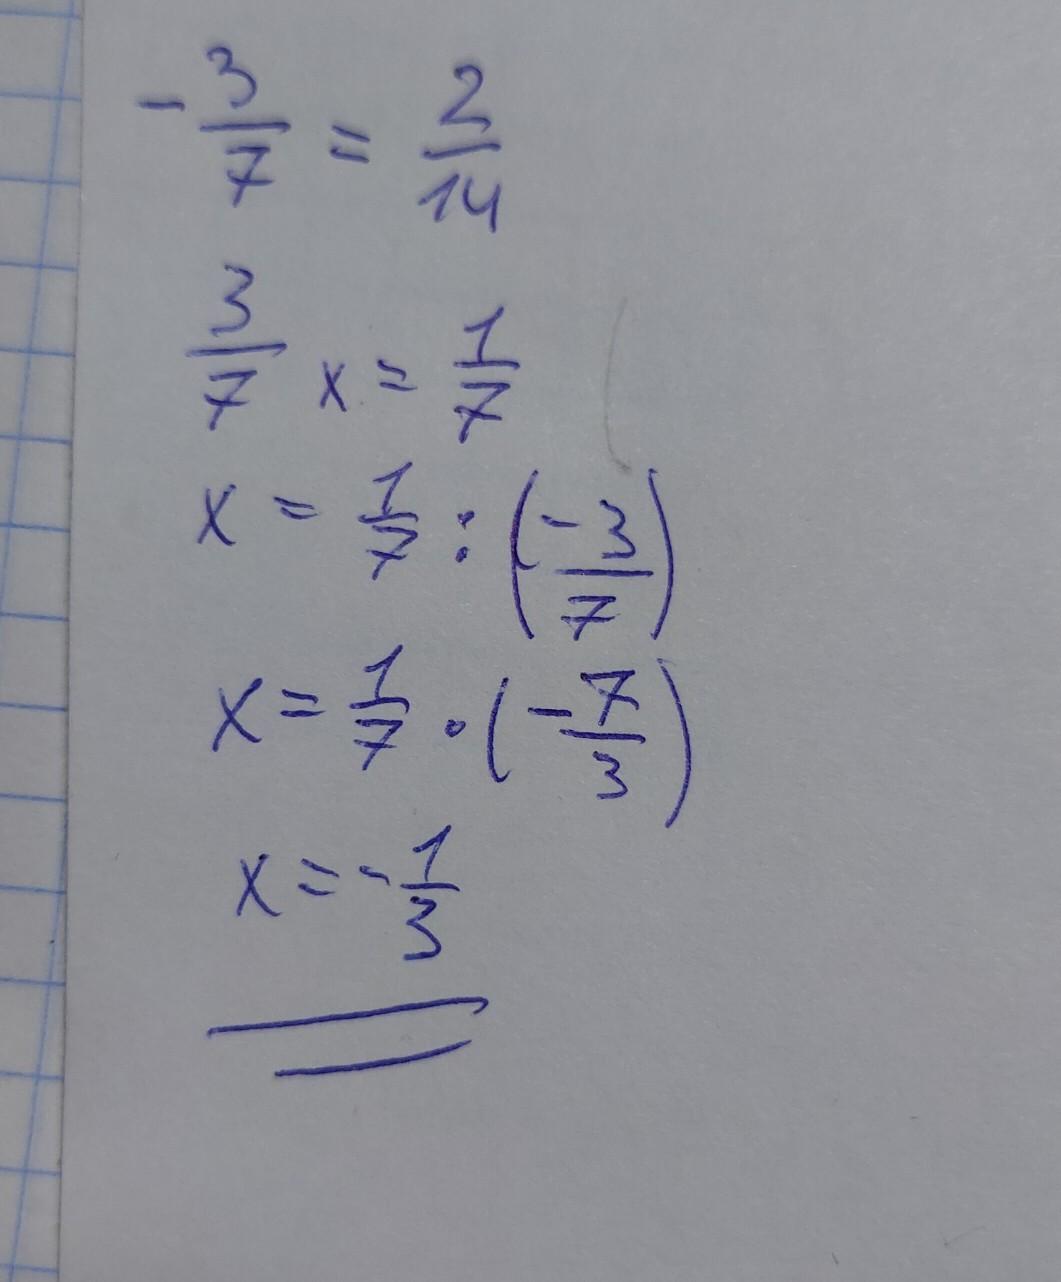 -3/7 = 2/14
3/7 x = 1/7
x = 1/7 : (-3/7)
x = 1/7 · (-7/3)
x = -1/3